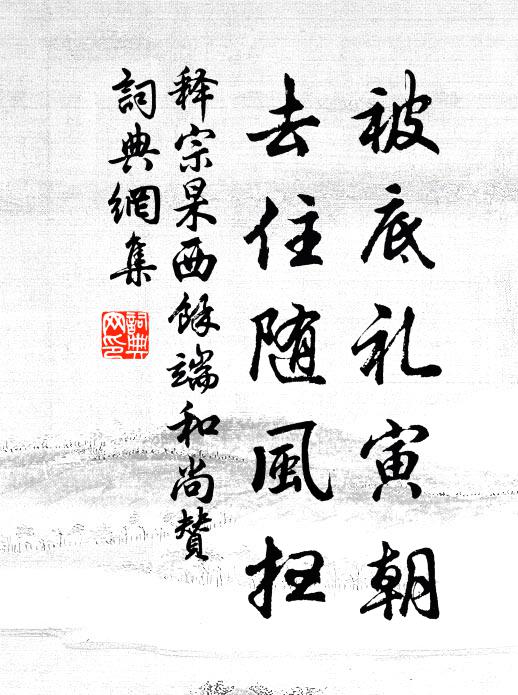 被底礼寅朝
去住随風扫
释宗杲西馀端和尚贊
詞典網集
詞典
网印